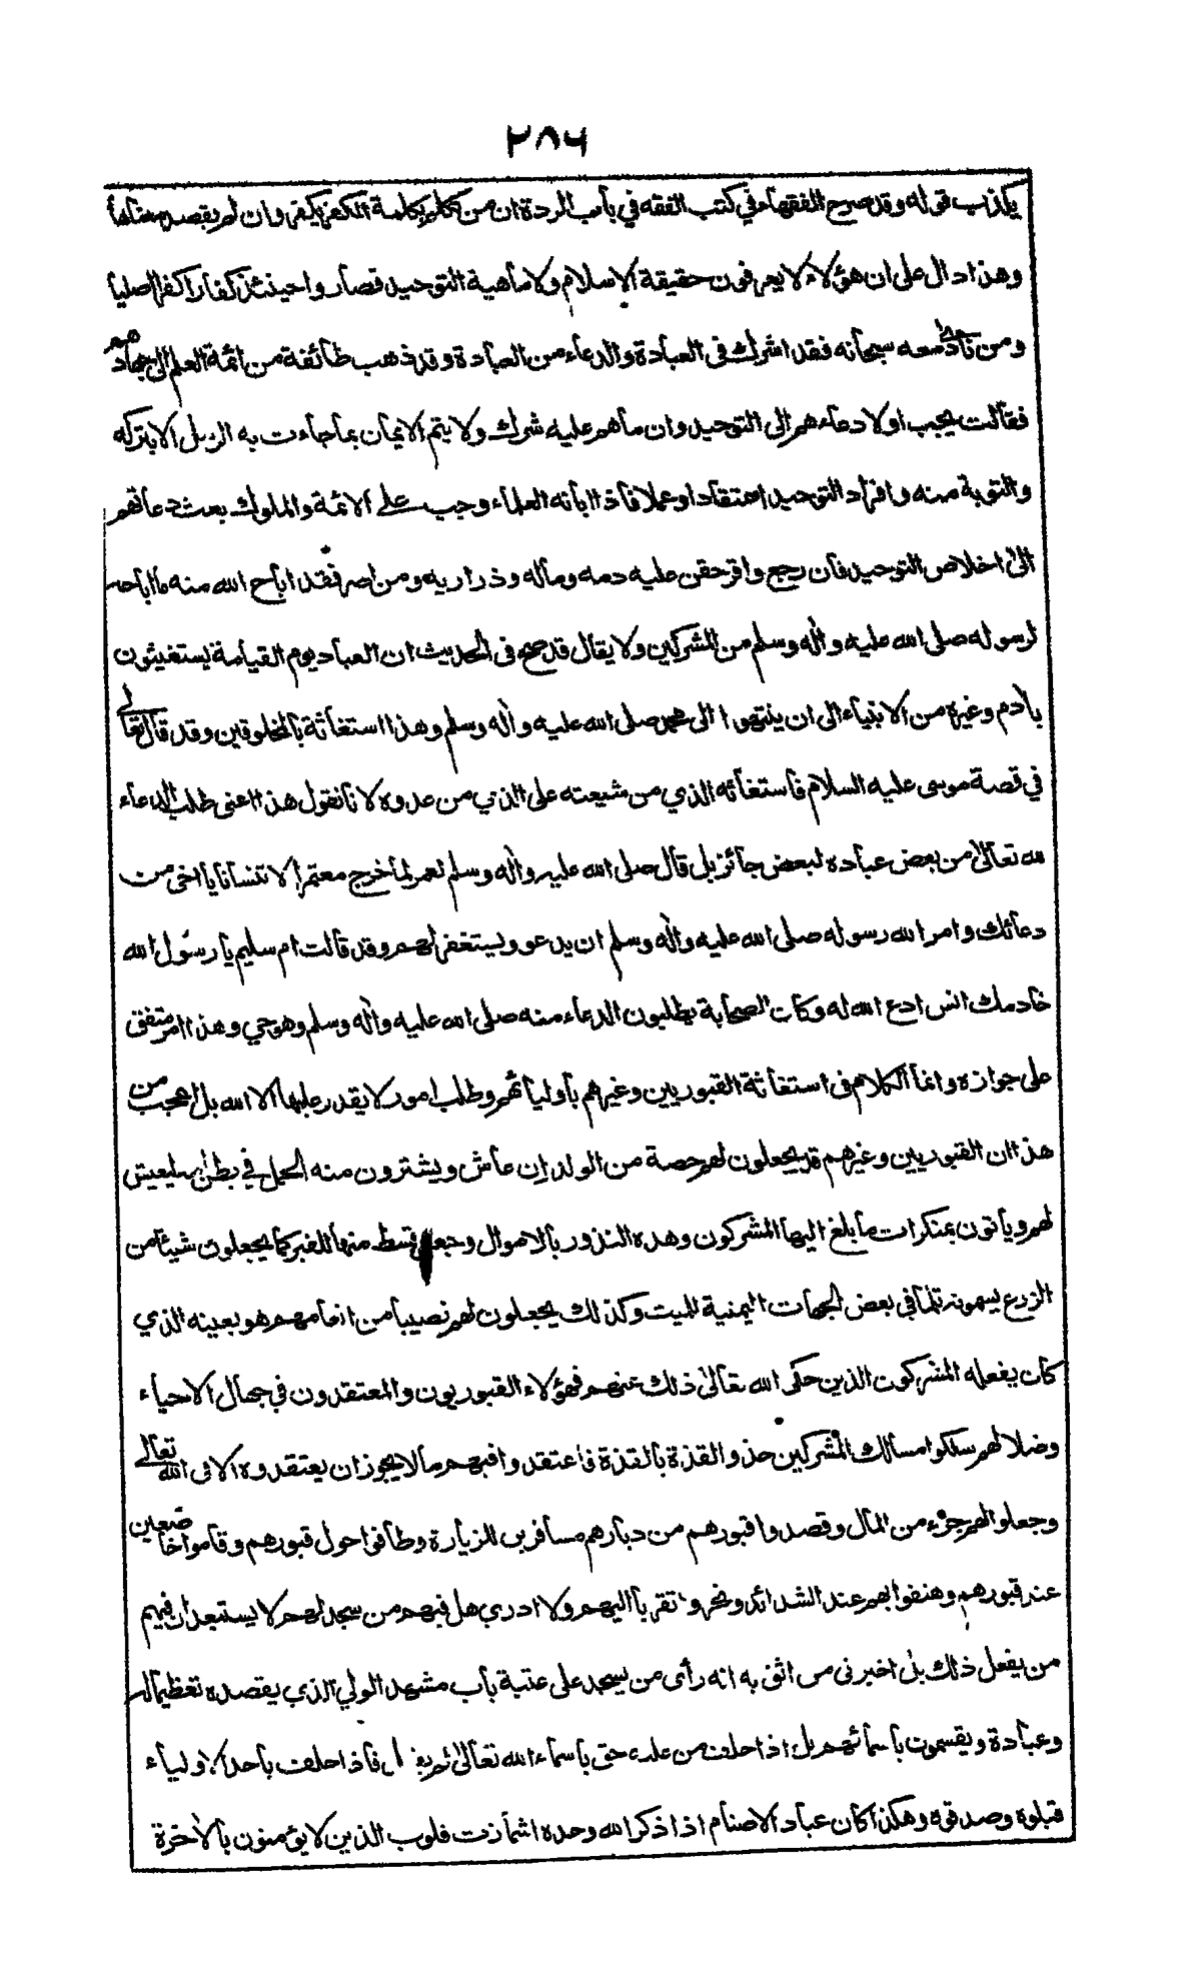 ٢٨٦
يكذب قوله وقد صرح الفقهاء في كتب الفقه في باب الردة ان من تكلم بكلمة الكفر يكفر وان لم يقصد معناها
وهذا دال على ان هؤلاء لا يعرفون حقيقة الاسلام ولا ماهية التوحيد فصاروا حينئذ كفارا كفرا اصليا
ومن نادى معه سبحانه فقد اشرك في العبادة والدعاء من العبادة وقد ذهب طائفة من ائمة العلم الى جهادهم
فقالت يجب اولا دعاءهم الى التوحيد وان ما هم عليه شرك ولا يتم الايمان بما جاءت به الرسل الا بتركه
والتوبة منه وافراد التوحيد اعتقادا وعملا فاذا ابانه العلماء وجب على الائمة والملوك بعث دعاتهم
الى اخلاص التوحيد فان رجع واقر حقن عليه دمه وماله وذراريه ومن اصر فقد اباح الله منه ما اباحه
لرسوله صلى الله عليه واله وسلم من المشركين ولا يقال قد صح في الحديث ان العباد يوم القيامة يستغيثون
بادم وغيره من الانبياء الى ان ينتهوا الى محمد صلى الله عليه واله وسلم وهذا استغاثة بالمخلوقين وقد قال تعالى
في قصة موسى عليه السلام فاستغاثه الذي من شيعته على الذي من عدوه لا نا نقول هذا اعنى طلب الدعاء
لله تعالى من بعض عباده لبعض جائز بل قال صلى الله عليه واله وسلم لعمر لما خرج معتمرا لا تنسانا يا اخى من
دعائك وامر الله رسوله صلى الله عليه واله وسلم ان يدعو ويستغفر لهم وقد قالت ام سليم يا رسول الله
خادمك انس ادع الله له وكان الصحابة يطلبون الدعاء منه صلى الله عليه واله وسلم وهو حي وهذا امر متفق
على جوازه وانما الكلام في استغاثة القبوريين وغيرهم باوليائهم وطلب امور لا يقدر عليها الا الله بل اعجب من
هذا ان القبوريين وغيرهم قد يجعلون لهم حصة من الولد ان عاش ويشترون منه الحمل في بطن امه ليعيش
لهم وياتون بمنكرات ما بلغ اليها المشركون وهذه النذور بالاموال وجعل قسط منها للقبر كما يجعلون شيئا من
الزرع يسمونه تلما في بعض الجهات اليمنية للميت وكذلك يجعلون لهم نصيبا من انعامهم هو بعينه الذي
كان يفعله المشركون الذين حكى الله تعالى ذلك عنهم فهؤلاء القبوريون والمعتقدون في جهال الاحياء
وضلالهم سلكوا مسالك المشركين حذو القذة بالقذة فاعتقدوا فيهم ما لا يجوز ان يعتقدوه الا في الله تعالى
وجعلوا لهم جزء من المال وقصدوا قبورهم من ديارهم مسافرين للزيارة وطافوا حول قبورهم وقاموا خاضعين
عند قبورهم وهتفوا بهم عند الشدائد ونحروا تقربا اليهم ولا ادري هل فيهم من سجد لهم لا يستبعد ان فيهم
من يفعل ذلك بل اخبرنى من اثق به انه رأى من يسجد على عتبة باب مشهد الولي الذي يقصده تعظيما له
وعبادة ويقسمون باسمائهم بل اذا حلف من عليه حق باسماء الله تعالى لم يقبل فاذا حلف باحد الاولياء
قبلوه وصدقوه وهكذا كان عباد الاصنام اذا ذكر الله وحده اشمازت قلوب الذين لا يؤمنون بالاخرة